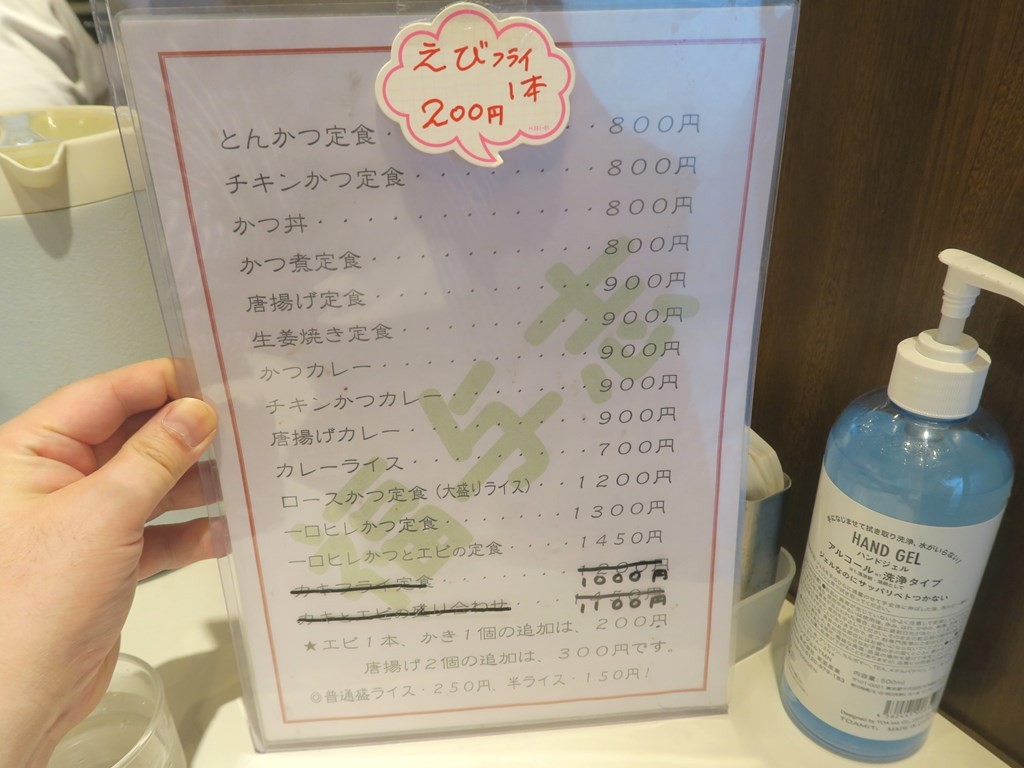 えびフライ
1本
200円
とんかつ定食・・・800円
チキンかつ定食・・・・・・・・・・・800円
かつ丼・・・・・・・・・・・・・・・800円
かつ煮定食・・・・・・・・・・・・・800円
唐揚げ定食・・・・・・・・・・・・・900円
生姜焼き定食・・・・・・・・・・・・900円
かつカレー・・・・・・・・・・・・・900円
チキンかつカレー・・・・・・・・・・900円
唐揚げカレー・・・・・・・・・・・・900円
カレーライス・・・・・・・・・・・・700円
ロースかつ定食(大盛りライス)・・1200円
一口ヒレかつ定食・・・・・・・・1300円
一口ヒレかつとエビの定食・・・・1450円
カキフライ定食・・・・・・・・・1000円
カキとエビの盛り合わせ・・・・・1100円
★エビ1本、かき1個の追加は、200円
唐揚げ2個の追加は、300円です。
◎普通盛ライス・250円、半ライス・150円!
手になじませて拭き取り洗浄、水がいらない!
HAND GEL
ハンドジェル
アルコール 洗浄タイプ
ジェルなのにサッパリベトつかない
内容量:500ml